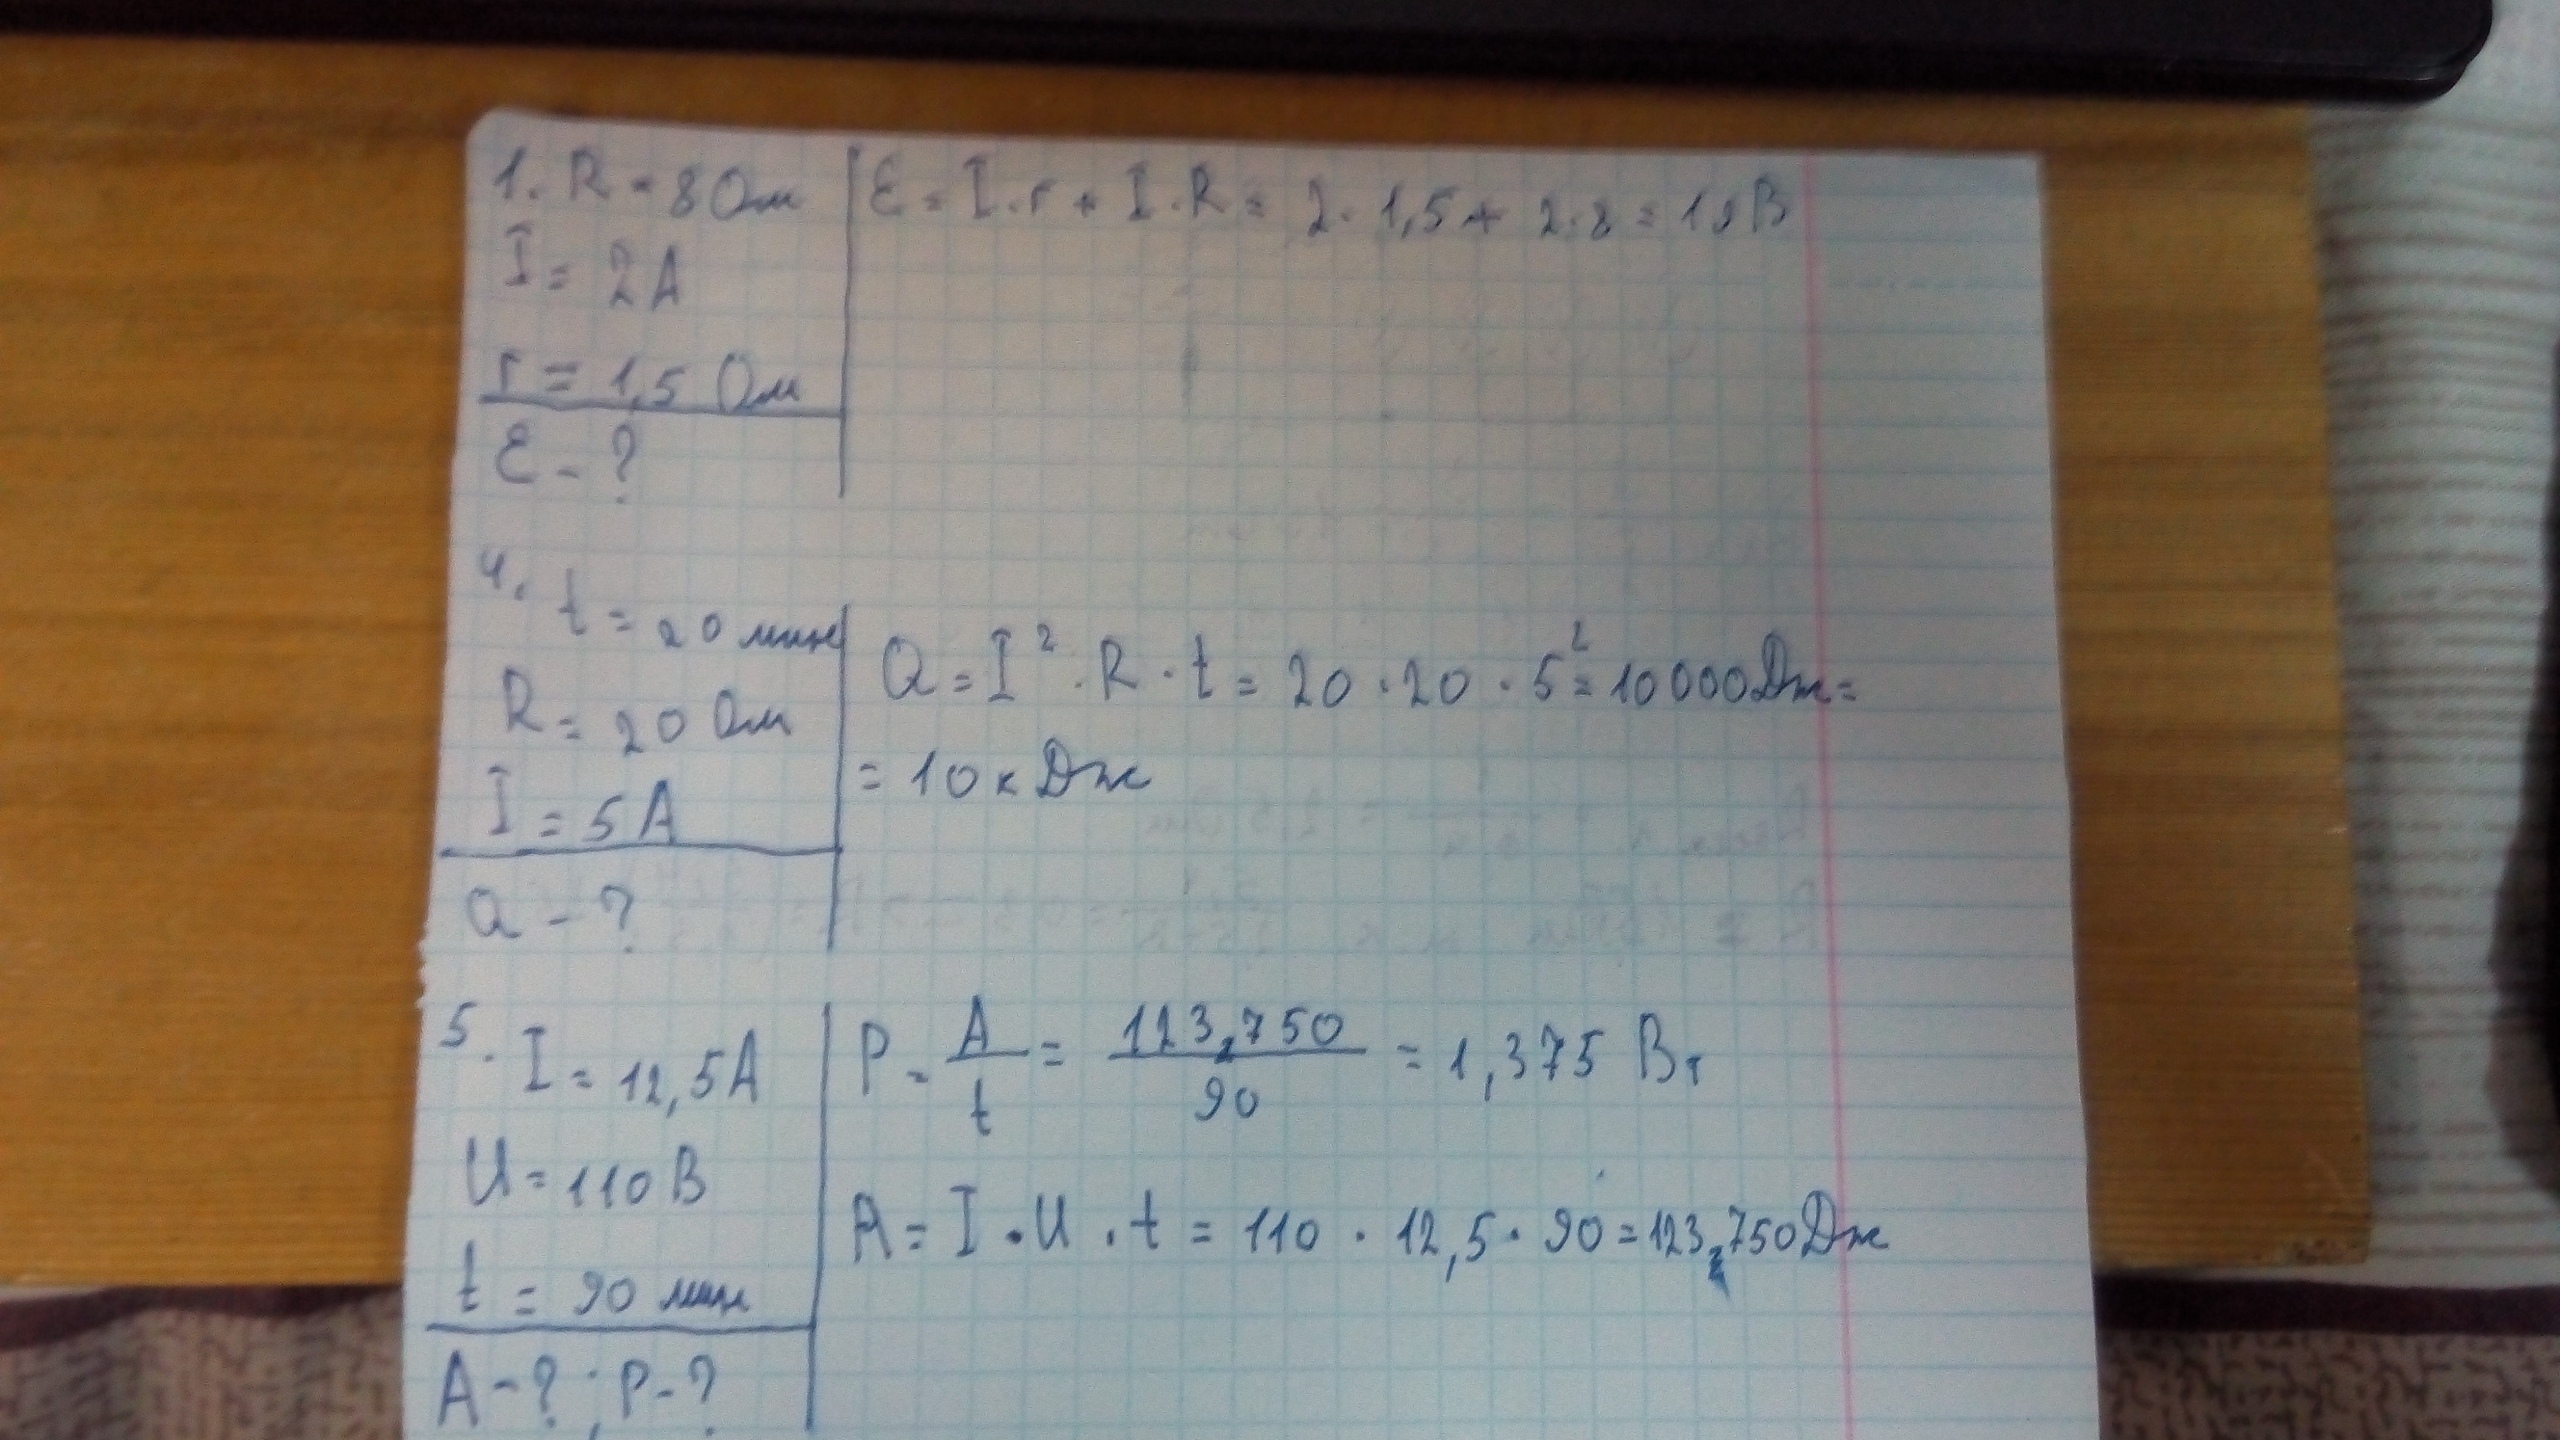 1. R = 8 Ом
I = 2 А
r = 1,5 Ом
Ɛ - ?
Ɛ = I · r + I · R = 2 · 1,5 + 2 · 8 = 19 В
4. t = 20 мин
R = 20 Ом
I = 5 А
Q - ?
Q = I² · R · t = 20 · 20 · 5² = 10000 Дж =
= 10 кДж
5. I = 12,5 А
U = 110 В
t = 90 мин
A - ? ; P - ?
P = A/t = 123,750/90 = 1,375 Вт
A = I · U · t = 110 · 12,5 · 90 = 123,750 Дж